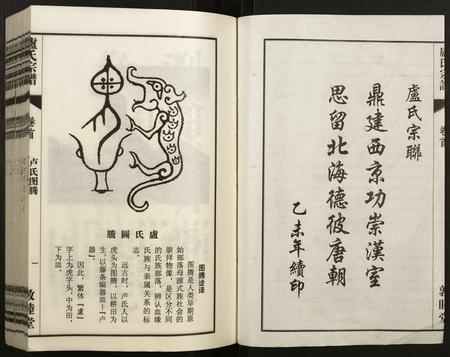 盧氏宗譜
卷首
盧氏宗聯
鼎建西京功崇漢室
思留北海德彼唐朝
乙未年續印
敦睦堂
盧氏宗譜
卷首
卢氏图腾
一
敦睦堂
盧氏圖騰
图腾诠译
图腾是人类早期原
始部落母源式族社会的
崇拜物像，是区分不同
的氏族部落，辨认血缘
氏族与亲属关系的标
志。
远古时，卢氏人以
虎头为图腾，以耕田为
生，以藤条编器皿—“卢
器”。
因此，繁体“盧”
字上为虎字头，中为田，
下为皿。